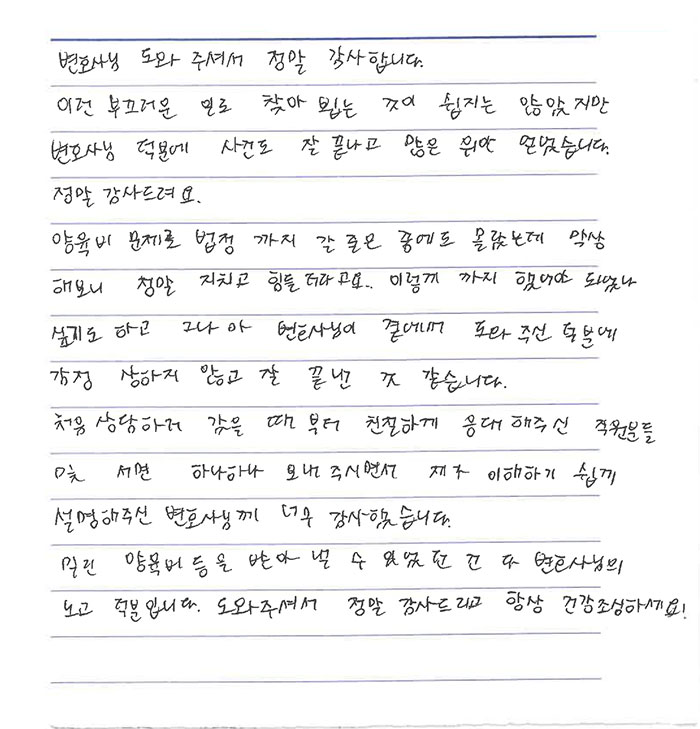 변호사님 도와 주셔서 정말 감사합니다.
이런 부끄러운 일로 찾아 뵙는 것이 쉽지는 않았지만
변호사님 덕분에 사건도 잘 끝나고 많은 위안 얻었습니다.
정말 감사드려요.
양육비 문제로 법정 까지 갈 줄은 꿈에도 몰랐는데 막상
해보니 정말 지치고 힘들더라고요.. 이렇게 까지 했어야 되었나
싶기도 하고 그나마 변호사님이 곁에서 도와 주신 덕분에
감정 상하지 않고 잘 끝낸 것 같습니다.
처음 상담하러 갔을 때 부터 친절하게 응대 해주신 직원분들
및 서면 하나하나 보내 주시면서 제가 이해하기 쉽게
설명해주신 변호사님께 너무 감사했습니다.
밀린 양육비 등을 받아 낼 수 있었던 건 다 변호사님의
노고 덕분입니다. 도와주셔서 정말 감사드리고 항상 건강조심하세요!